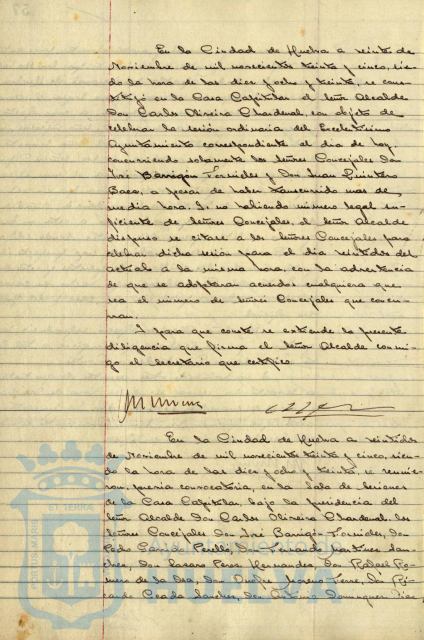 En la Ciudad de Huelva a veinte de
Noviembre de mil novecientos treinta y cinco, sien-
do la hora de las diez y ocho y treinta, se cons-
tituyó en la Casa Capitular el señor Alcalde
Don Carlos Oliveira Chardenal, con objeto de
celebrar la sesión ordinaria del Excelentísimo
Ayuntamiento correspondiente al dia de hoy,
concurriendo solamente los señores Concejales Don
José Barrigón Fornieles y Don Juan Quintero
Baez, a pesar de haber transcurrido mas de
media hora. Y no habiendo número legal su-
ficiente de señores Concejales, el señor Alcalde
dispuso se citase a los señores Concejales para
celebrar dicha sesión para el dia veintidos del
actual a la misma hora, con la advertencia
de que se adoptaran acuerdos cualquiera que
sea el número de señores Concejales que concu-
rran.
Y para que conste se extiende la presente
diligencia que firma el señor Alcalde conmi-
go el secretario que certifico.
En la Ciudad de Huelva a veintidos
de Noviembre de mil novecientos treinta y cinco, sien-
do la hora de las diez y ocho y treinta, se reunie-
ron, previa convocatoria, en la Sala de sesiones
de la Casa Capitular, bajo la presidencia del
señor Alcalde Don Carlos Oliveira Chardenal, los
señores Concejales Don José Barrigón Fornieles, Don
Pedro Garrido Perelló, Don Fernando Martinez San-
chez, Don Lazaro Perez Hernandez, Don Rafael Ro-
mero de la Moreno Don Ri-
cardo Sanchez, Don Antonio Dominguez Diaz,